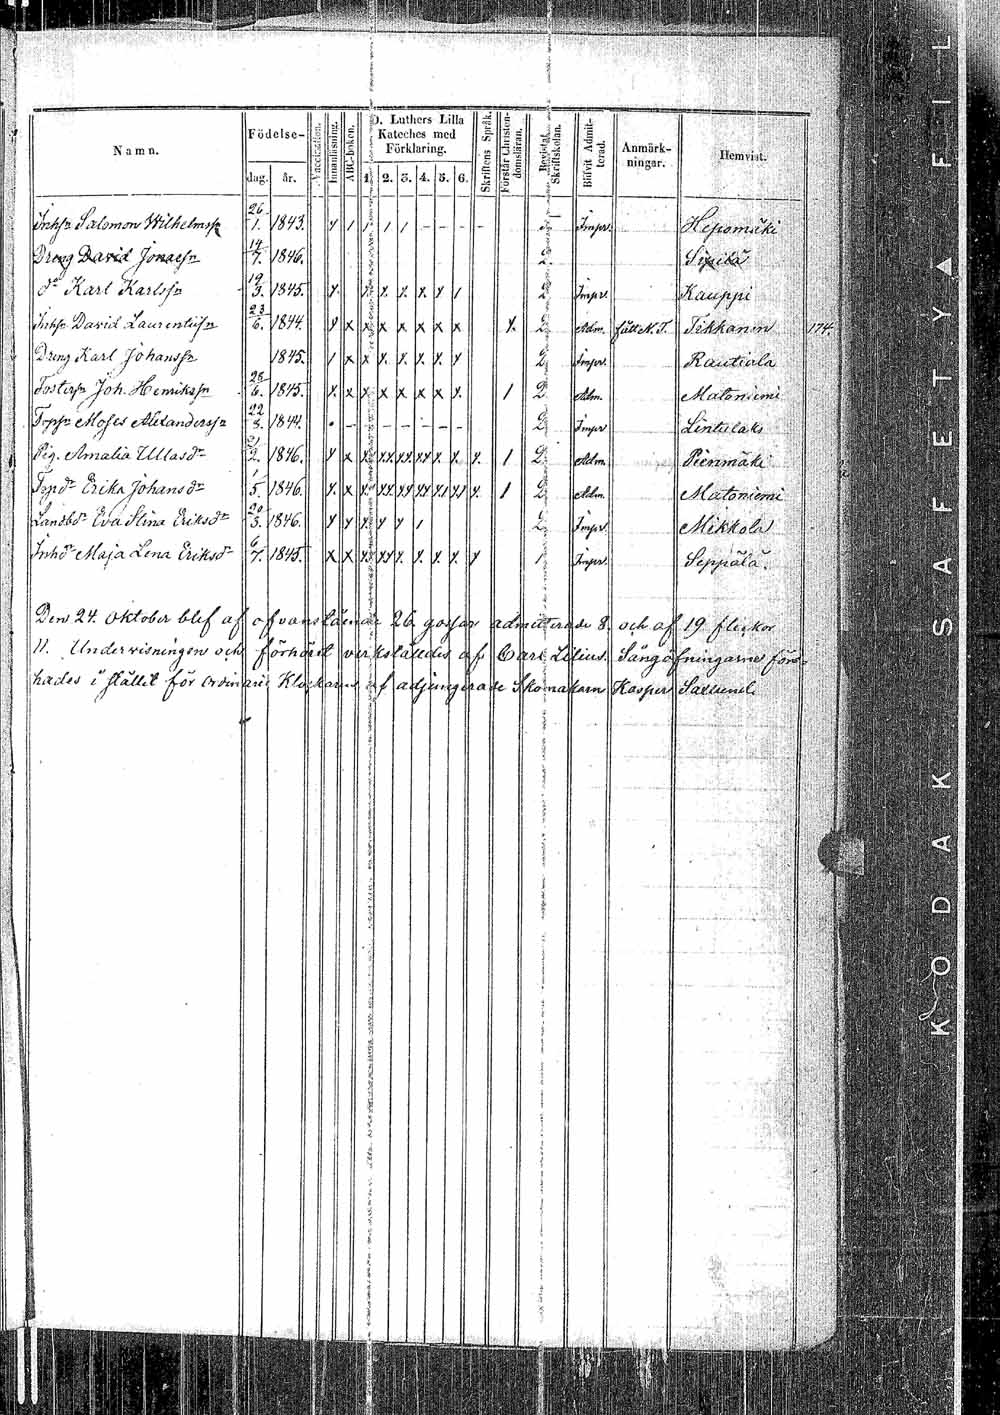 Namn. Födelse- dag. år. Vaccination. Innanläsning. ABC-boken. D. Luthers Lilla Kateches med Förklaring. 1. 2. 3. 4. 5. 6. Skriftens Språk. Förstår Christendomsläran. Bevistat Skriftskolan. Blifvit Admitterad. Anmärkningar. Hemvist.
Inhsn Salomon Wilhelmssn 26/1. 1843. Y 1 1 1 1 - - - - Impr. Hepomäki
Dreng David Jonaesn 14/7. 1846. 2. Sipilä
do Karl Karlssn 19/3. 1845. Y. Y. Y. Y. Y. Y 1 2 Impr. Kauppi
Inhsn David Laurentiisn 23/6. 1844. Y x x x x x x x Y. 2 Adm. Tikkanen 174.
Dreng Karl Johanssn 1845. 1 x x Y. Y. Y. Y. Y 2 Impr. Rautiola
Fostersn Joh. Henrikssn 28/6. 1845. Y. x x x x x x Y. 1 2 Adm. Matoniemi
Torpsn Moses Alexanderssn 22/3. 1844. - - - - - - - 2 Impr Lintulaks
Pig. Amalia Ullasdr 21/2. 1846. Y x Y. YY. YY. YY Y. Y. Y. 1 2 Adm Pienmäki
Torpdr Erika Johansdr 1/5. 1846. Y. x Y. YY. YY YY Y1 Y1 Y. 1 2 Adm. Matoniemi
Landbdr Eva Stina Eriksdr 20/3. 1846. Y Y Y. Y Y 1 2 Impr. Mikkola
Inhdr Maja Lena Eriksdr 6/7. 1845. x x Y. YY Y. Y. Y. Y. Y 1 Impr. Seppälä.
Den 24. Oktober blef af ofvanstående 26 gossar admitterade 8. och af 19 flickor
11. Undervisningen och förhöret verkställdes af Carl Lilius. Sångöfningarne före-
hades i stället för ordinarie Klockaren af adjungerade Skomakarn Kasper Saxlund
KODAK SAFETY ▲ FIL